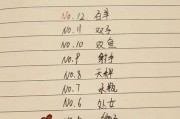 NO.12 白羊
NO.11 双子
NO.10 双鱼
NO.9 射手
NO.8 天秤
NO.7 水瓶
NO.6 处女